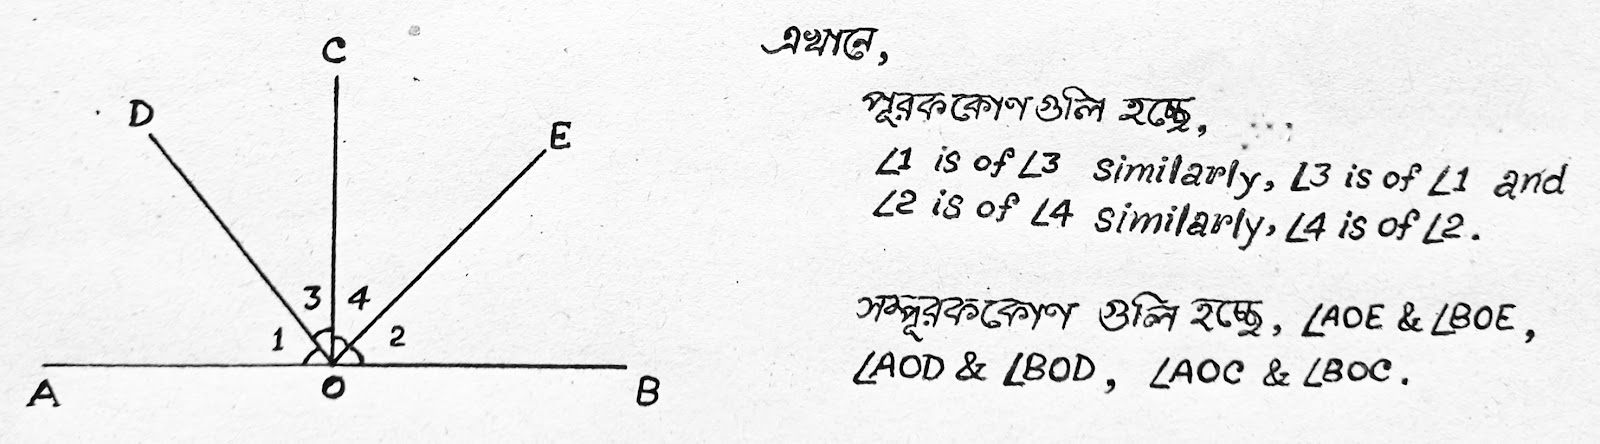 C
D
E
3 4
1 2
A O B
এখানে,
পূরককোণ গুলি হচ্ছে,
∠1 is of ∠3 similarly, ∠3 is of ∠1 and
∠2 is of ∠4 similarly, ∠4 is of ∠2.
সম্পূরককোণ গুলি হচ্ছে, ∠AOE & ∠BOE,
∠AOD & ∠BOD, ∠AOC & ∠BOC.